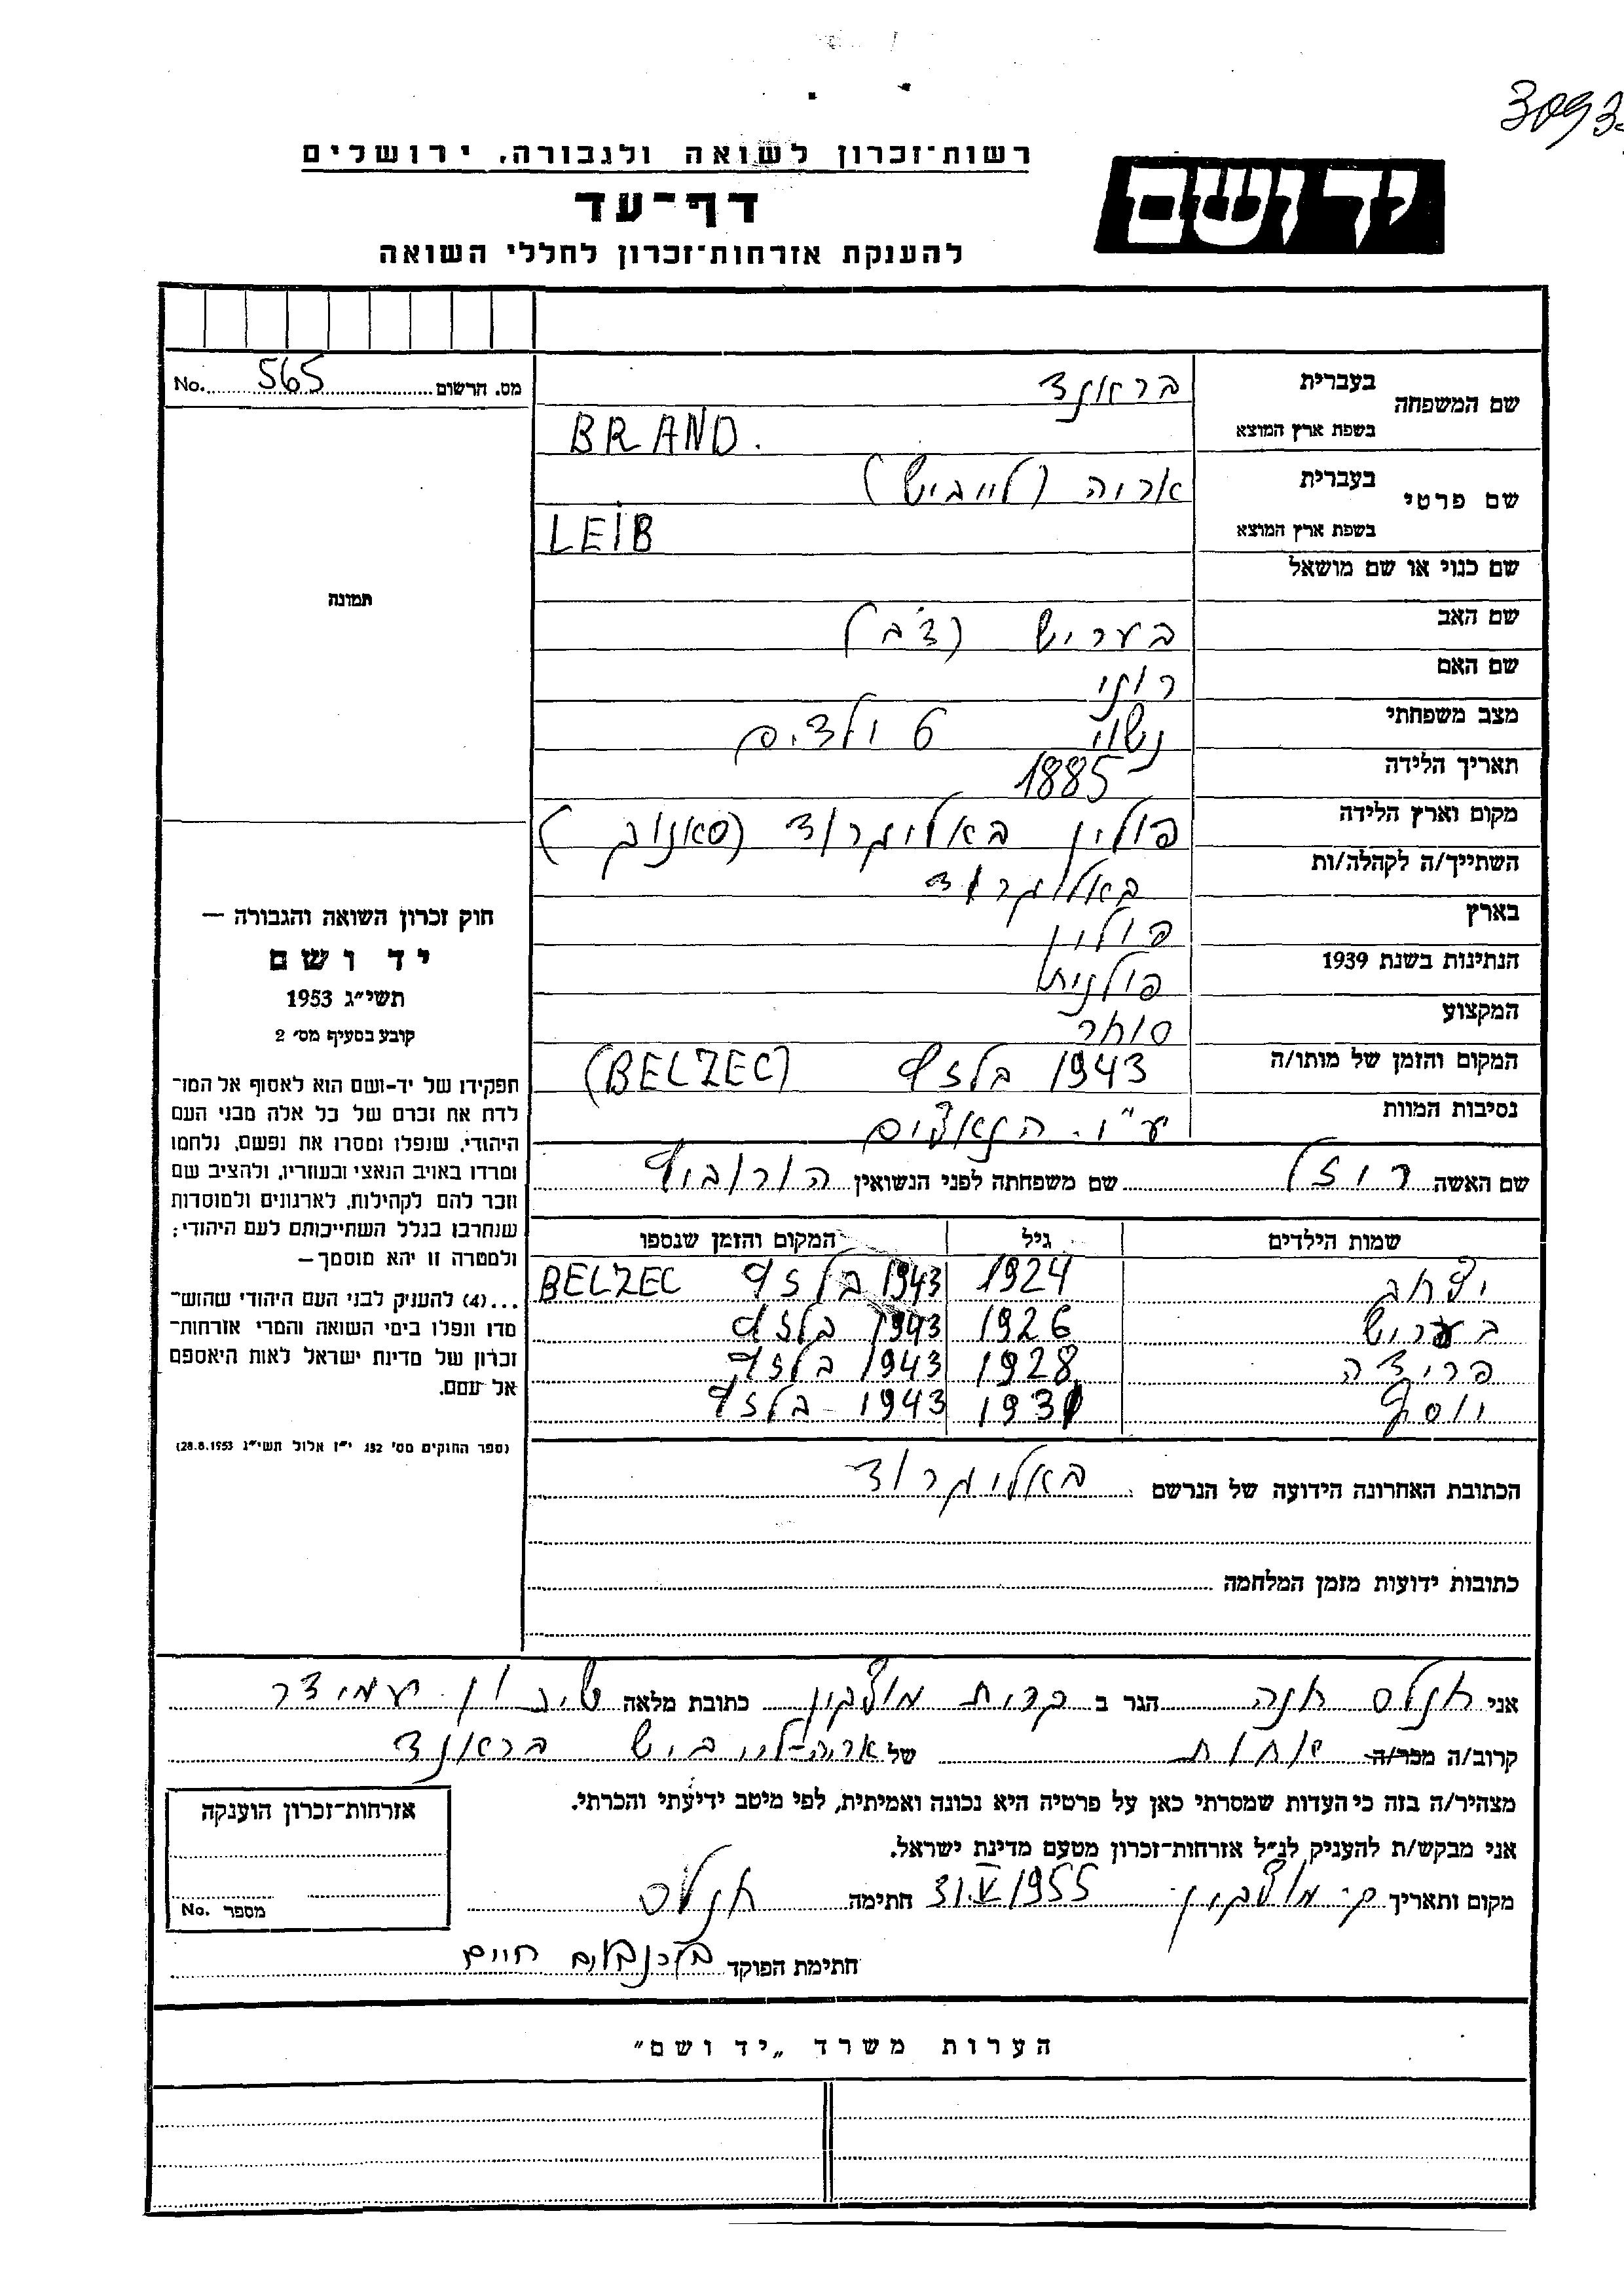 3093
רשות־זכרון לשואה ולגבורה, ירושלים
יד ושם
דף־עד
להענקת אזרחות־זכרון לחללי השואה
מס. הרשום 565 No.
שם המשפחה
בעברית בראנד
בשפת ארץ המוצא BRAND.
שם פרטי
בעברית אריה (לייביש)
בשפת ארץ המוצא LEIB
שם כנוי או שם מושאל
שם האב בעריש (דב)
שם האם רוני
מצב משפחתי נשוי 6 ילדים
תאריך הלידה 1885
מקום וארץ הלידה פולין באליגרוד (סאנוק)
השתייך/ה לקהלה/ות באליגרוד
בארץ פולין
הנתינות בשנת 1939 פולנית
המקצוע סוחר
המקום והזמן של מותו/ה 1943 בלזץ (BELZEC)
נסיבות המוות ע"י הנאצים
שם האשה רוזל שם משפחתה לפני הנשואין הורוביץ
שמות הילדים גיל המקום והזמן שנספו
יצחק 1924 1943 בלזץ BELZEC
בעריש 1926 1943 בלזץ
פרידה 1928 1943 בלזץ
יוסף 1931 1943 - בלזץ
הכתובת האחרונה הידועה של הנרשם באליגרוד
כתובות ידועות מזמן המלחמה
תמונה
חוק זכרון השואה והגבורה —
יד ושם
תשי״ג 1953
קובע בסעיף מס׳ 2
תפקידו של יד־ושם הוא לאסוף אל המו־
לדת את זכרם של כל אלה מבני העם
היהודי, שנפלו ומסרו את נפשם, נלחמו
ומרדו באויב הנאצי ובעוזריו, ולהציב שם
וזכר להם לקהילות, לארגונים ולמוסדות
שנחרבו בגלל השתייכותם לעם היהודי;
ולמטרה זו יהא מוסמך—
...(4) להעניק לבני העם היהודי שהוש־
מדו ונפלו בימי השואה והמרי אזרחות־
זכרון של מדינת ישראל לאות היאספם
אל עמם.
(ספר החוקים מס׳ 132 י״ז אלול תשי״ג 28.8.1953)
אני חנה הגר ב קרית מוצקין כתובת מלאה שיכון עמידר
קרוב/ה מכר/ה אחות של אריה-לייביש בראנד
מצהיר/ה בזה כי העדות שמסרתי כאן על פרטיה היא נכונה ואמיתית, לפי מיטב ידיעתי והכרתי.
אני מבקש/ת להעניק לנ״ל אזרחות־זכרון מטעם מדינת ישראל.
מקום ותאריך ק. מוצקין 31.V.1955 חתימה
חתימת הפוקד חיים
אזרחות־זכרון הוענקה
מספר No.
הערות משרד „יד ושם״